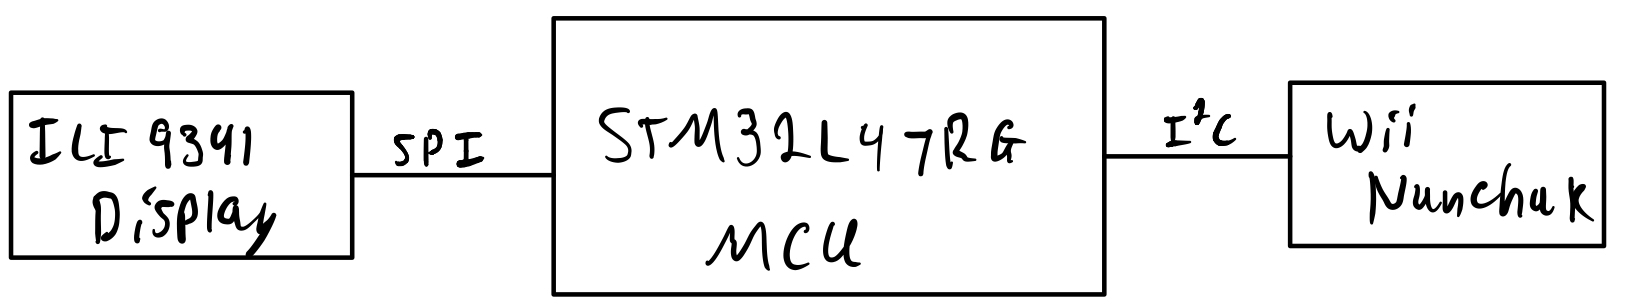 ILI9341
Display
SPI
STM32L47RG
MCU
I²C
Wii
Nunchuk